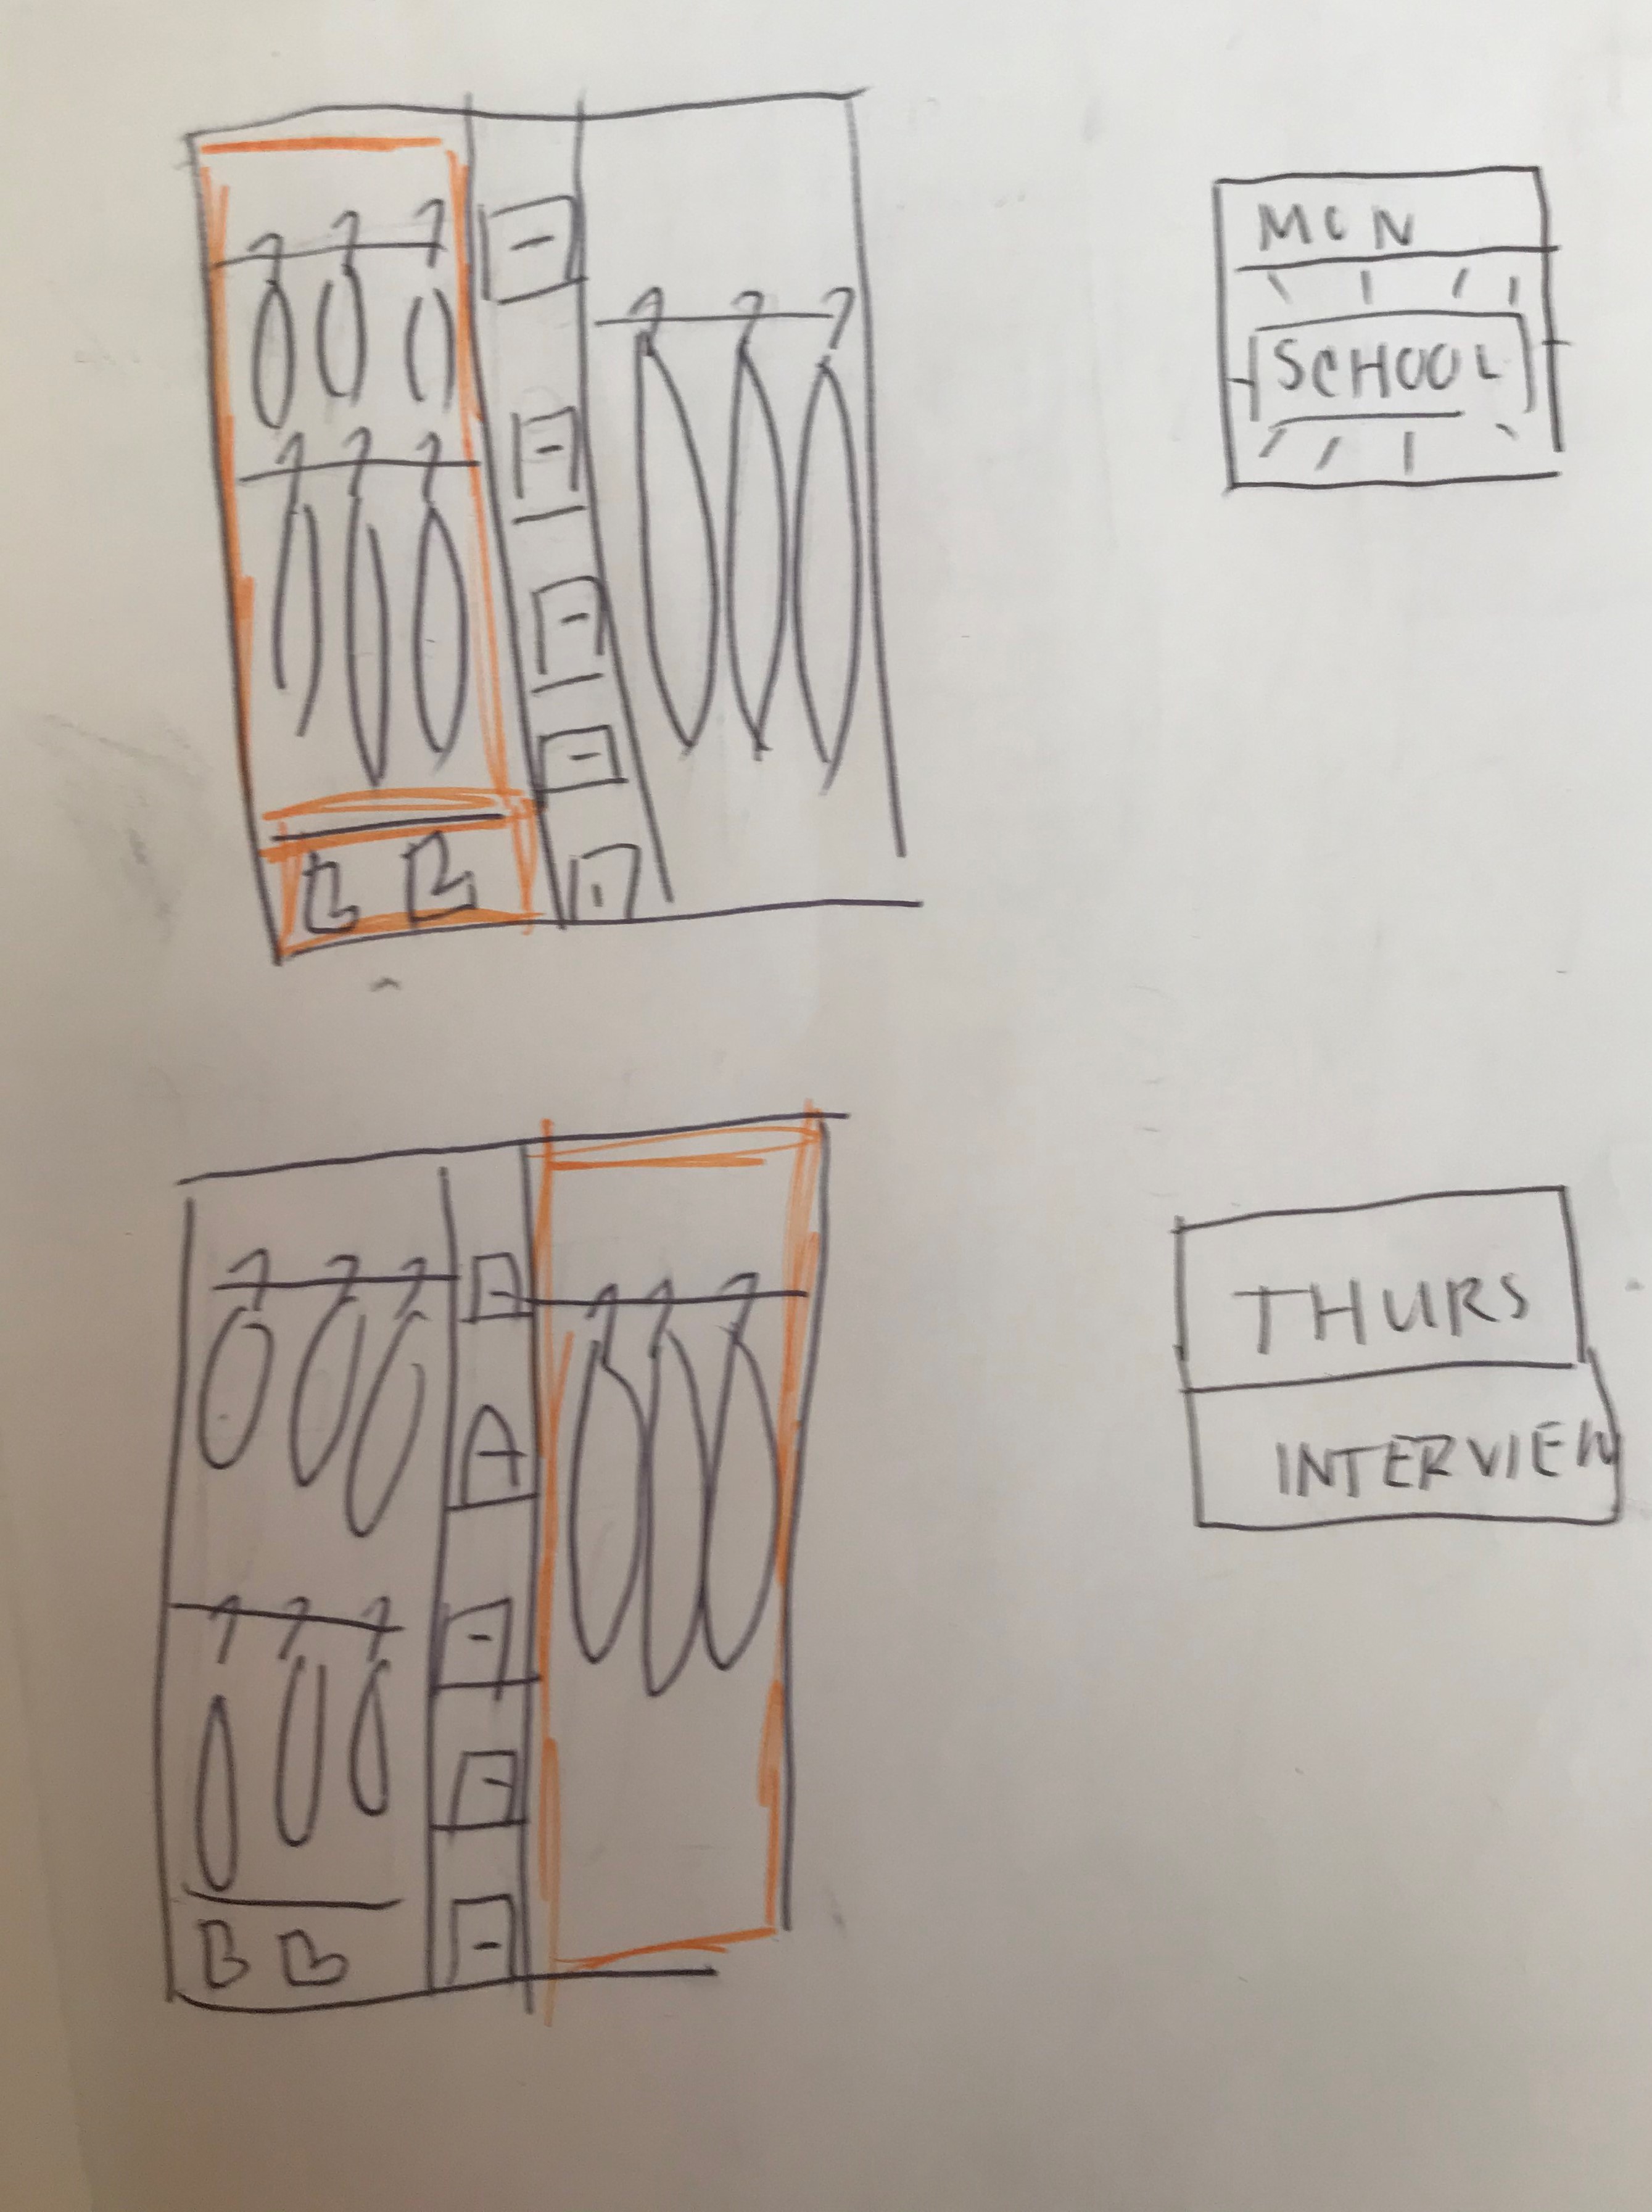 MON
SCHOOL
THURS
INTERVIEW